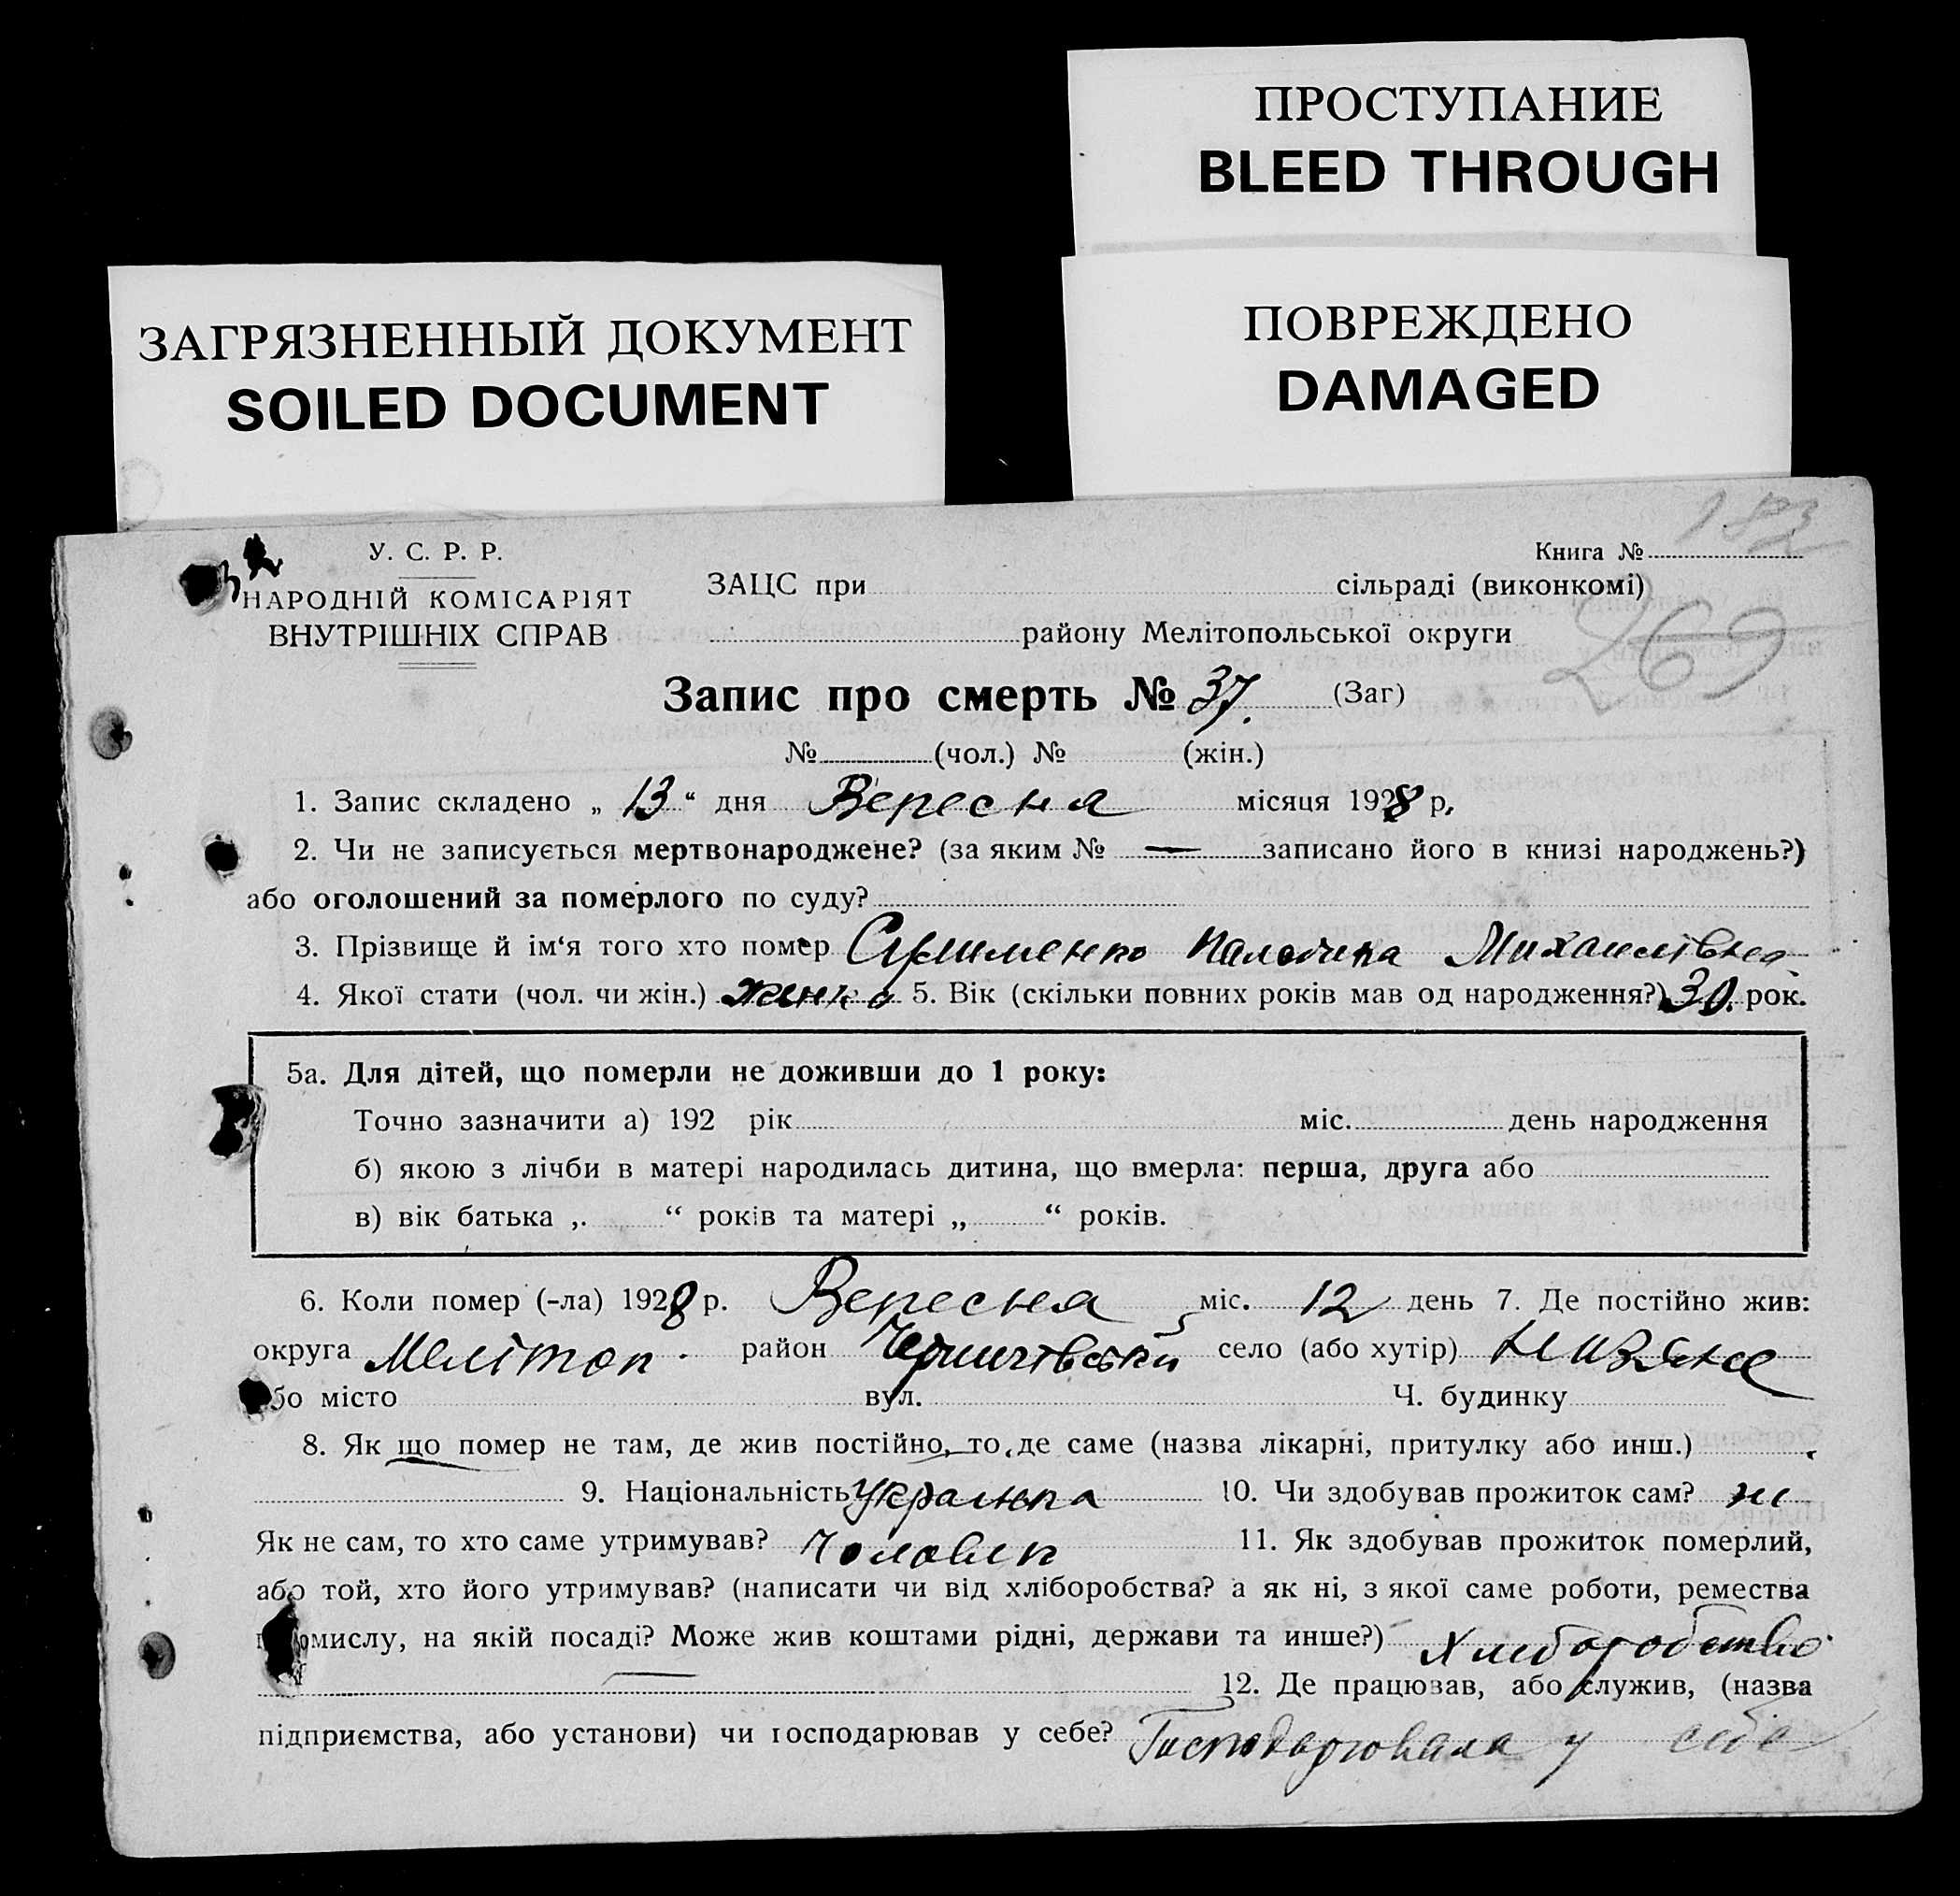 ПРОСТУПАНИЕ
BLEED THROUGH
ЗАГРЯЗНЕННЫЙ ДОКУМЕНТ
SOILED DOCUMENT
ПОВРЕЖДЕНО
DAMAGED
У. С. Р. Р.
НАРОДНІЙ КОМІСАРІЯТ
ВНУТРІШНІХ СПРАВ
Книга № 182
ЗАЦС при сільраді (виконкомі)
району Мелітопольської округи
269
Запис про смерть № 37. (Заг)
№ (чол.) № (жін.)
1. Запис складено „ 13 “ дня Вересня місяця 1928 р.
2. Чи не записується мертвонароджене? (за яким № — записано його в книзі народжень?)
або оголошений за померлого по суду?
3. Прізвище й ім‘я того хто помер Михаилівна
4. Якої стати (чол. чи жін.) жінка 5. Вік (скільки повних років мав од народження?) 30. рок.
5а. Для дітей, що померли не доживши до 1 року:
Точно зазначити а) 192 рік міс. день народження
б) якою з лічби в матері народилась дитина, що вмерла: перша, друга або
в) вік батька „ “ років та матері „ “ років.
6. Коли помер (-ла) 1928 р. Вересня міс. 12 день 7. Де постійно жив:
округа Мелітоп. район село (або хутір)
або місто вул. Ч. будинку
8. Як що помер не там, де жив постійно, то де саме (назва лікарні, притулку або инш.)
9. Національність Украинка 10. Чи здобував прожиток сам? ні
Як не сам, то хто саме утримував? Чоловік 11. Як здобував прожиток померлий,
або той, хто його утримував? (написати чи від хліборобства? а як ні, з якої саме роботи, ремества
промислу, на якій посаді? Може жив коштами рідні, держави та инше?) Хліборобство
12. Де працював, або служив, (назва
підприємства, або установи) чи господарював у себе? Господарювала у себе